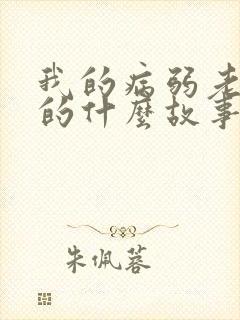 我的病弱老
的什麼故事
朱佩蓉